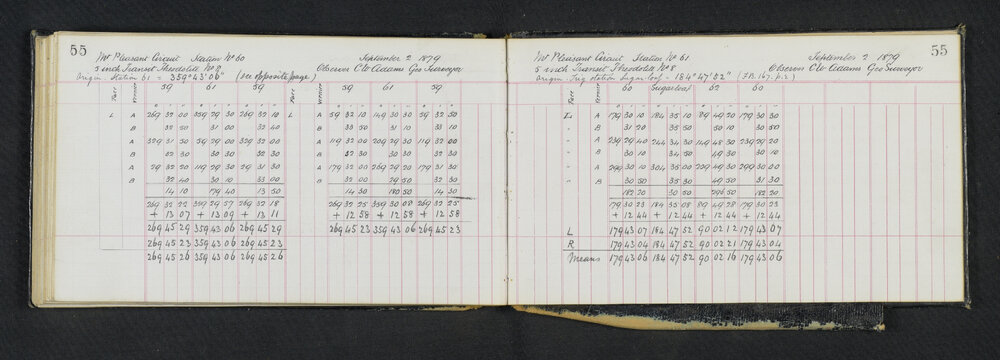 55
Mt Pleasant Circuit Station No 60 September 2 1879
5 inch Transit Theodolite No 8 Observer C W Adams Geo Surveyor
Origin Station 61 = 359°43'06" (see opposite page)
Face Vernier 59 61 59 Face Vernier 59 61 59
L A 269 32 00 359 29 30 269 32 10 L A 59 32 10 149 30 30 59 32 50
B 32 50 31 00 32 40 B 33 50 31 10 33 10
A 329 31 50 59 29 00 329 32 00 A 119 32 00 209 29 20 119 32 00
B 32 30 30 30 32 30 B 32 30 30 30 32 30
A 29 32 20 119 29 30 29 31 30 A 179 32 00 269 29 20 179 31 30
B 32 40 30 10 33 00 B 32 00 29 50 32 30
14 10 179 40 13 50 14 30 180 50 14 30
269 32 22 359 29 57 269 32 18 269 32 25 359 30 08 269 32 25
+ 13 07 + 13 09 + 13 11 + 12 58 + 12 58 + 12 58
269 45 29 359 43 06 269 45 29 269 45 23 359 43 06 269 45 23
269 45 23 359 43 06 269 45 23
269 45 26 359 43 06 269 45 26
55
Mt Pleasant Circuit Station No 61 September 2 1879
5 inch Transit Theodolite No 8 Observer C W Adams Geo Surveyor
Origin, Trig Station Sugarloaf = 184°47'52" (F.B. 167. p. 2)
Face Vernier 60 Sugarloaf 62 60
L A 179 30 00 184 35 10 89 49 20 179 30 00
B 31 20 35 50 50 10 30 50
" A 239 29 40 244 34 30 149 48 30 239 29 20
" B 30 10 34 50 49 30 30 10
" A 299 30 10 304 35 00 209 49 20 299 30 00
" B 30 50 35 30 49 50 31 30
182 20 30 50 296 50 182 20
179 30 23 184 35 08 89 49 28 179 30 23
+ 12 44 + 12 44 + 12 44 + 12 44
L 179 43 07 184 47 52 90 02 12 179 43 07
R 179 43 04 184 47 52 90 02 21 179 43 04
Means 179 43 06 184 47 52 90 02 16 179 43 06